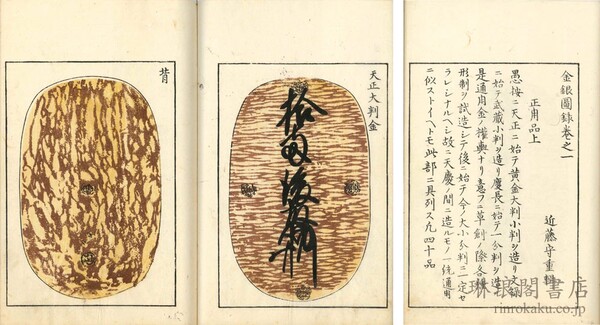 金銀圖録巻之一
近藤守重輯
正用品上
愚按ニ天正ニ始テ黄金大判小判ヲ造リ文禄
ニ始テ武蔵小判ヲ造リ慶長ニ始テ一分判ヲ造
是通用金ノ權輿ナリ意フニ草創ノ際各種
形制ヲ試造シテ後ニ始テ今ノ大小分判ニ一定セ
ラレシナルヘシ故ニ天慶ノ間ニ造ルモノ一統通用
ニ似ストイヘトモ此部ニ具列ス凡四十品
天正大判金
拾両後藤
背
琳琅閣書店
rinrokaku.co.jp